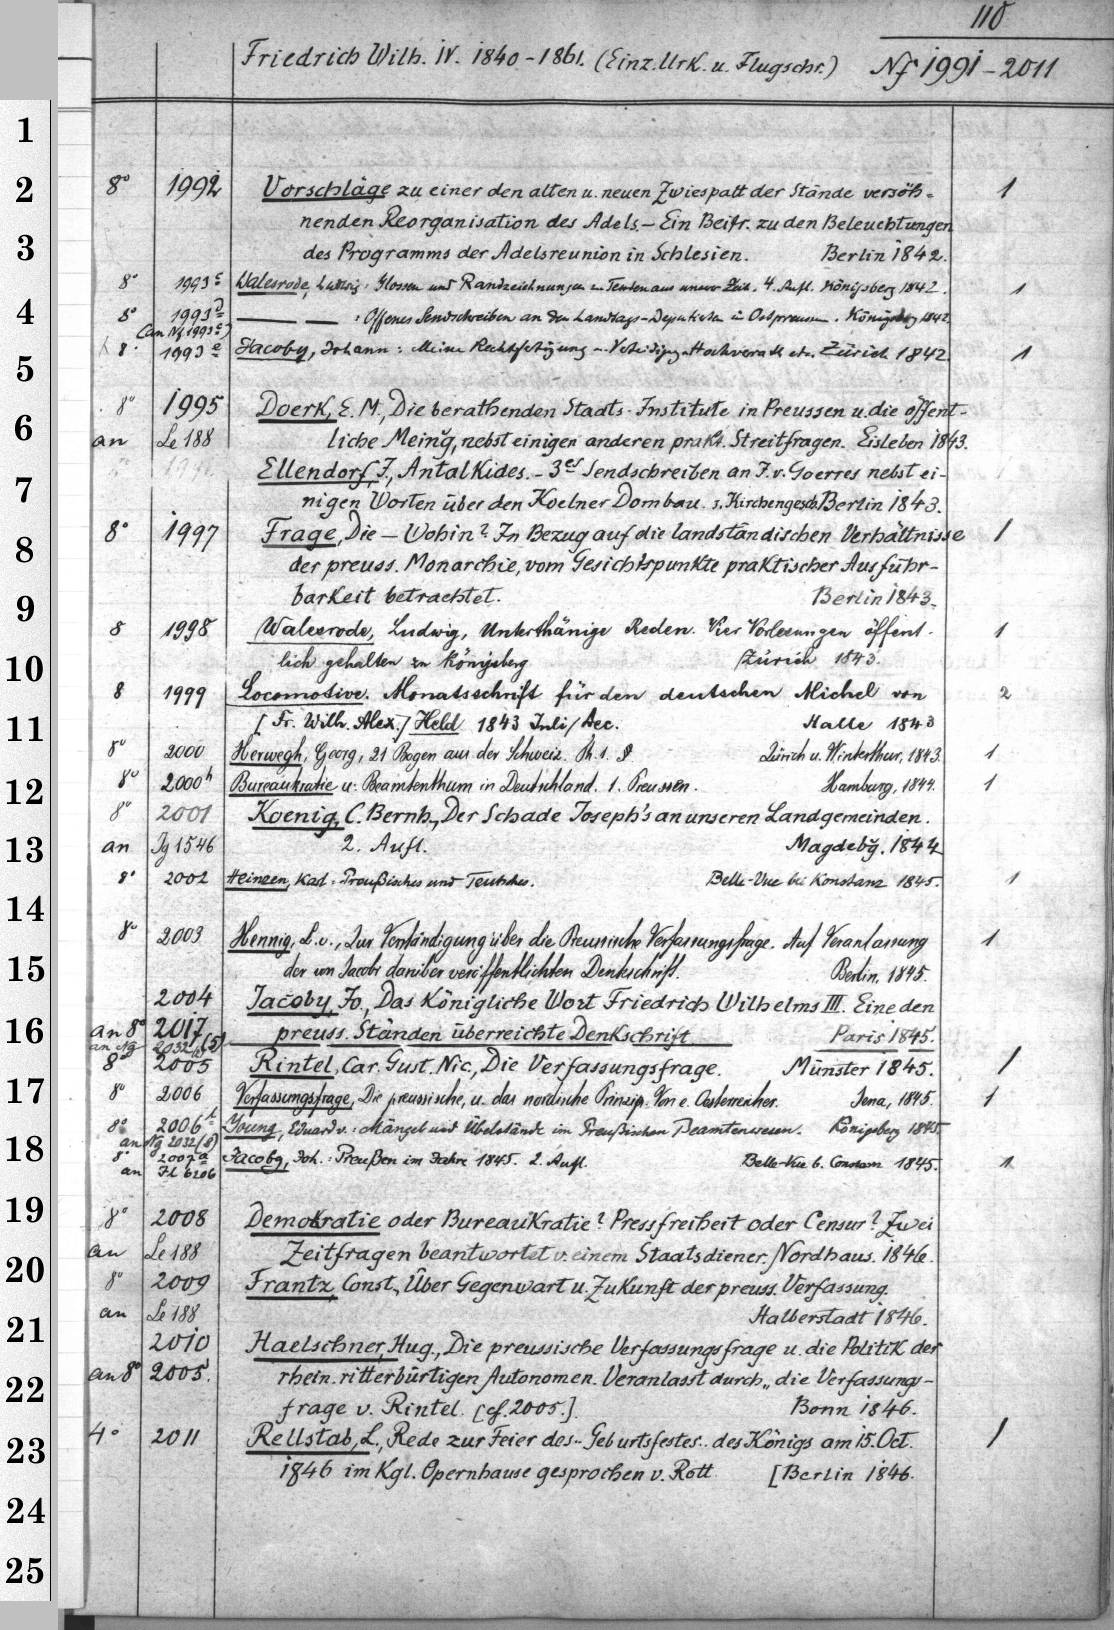 110
Friedrich Wilh. IV. 1840-1861. (Einz. Urk. u. Flugschr.) Nf 1991-2011
1
2 8° 1992 Vorschläge zu einer den alten u. neuen Zwiespalt der Stände versöh- 1
nenden Reorganisation des Adels. - Ein Beitr. zu den Beleuchtungen
3 des Programms der Adelsreunion in Schlesien. Berlin 1842.
8° 1993c Walesrode, Ludwig: Glossen und Randzeichnungen zu Texten aus unserer Zeit. 4. Aufl. Königsberg 1842. 1
4 8° 1993d — — : Offenes Sendschreiben an den Landtags-Deputirten in Ostpreussen. Königsberg 1842
(an Nf 1993c)
8° 1993e Jacoby, Johann: Meine Rechtfertigung Hochverrath etc. Zürich 1842 1
5
8° 1995 Doerk, E. M., Die berathenden Staats-Institute in Preussen u. die öffent-
6 an Le 188 liche Meing, nebst einigen anderen prakt. Streitfragen. Eisleben 1843.
Ellendorf, J., Antalkides. - 3es Sendschreiben an J. v. Goerres nebst ei-
7 nigen Worten über den Koelner Dombau. s. Kirchengesch. Berlin 1843.
8° 1997 Frage, Die — Wohin? In Bezug auf die landständischen Verhältnisse 1
8 der preuss. Monarchie, vom Gesichtspunkte praktischer Ausführ-
9 barkeit betrachtet. Berlin 1843.
8 1998 Walesrode, Ludwig, Unterthänige Reden. Vier Vorlesungen öffent- 1
10 lich gehalten zu Königsberg Zürich 1843.
8 1999 Locomotive. Monatsschrift für den deutschen Michel von 2
11 [Fr. Wilh. Alex.] Held 1843 Juli/Dec. Halle 1843
8° 2000 Herwegh, Georg, 21 Bogen aus der Schweiz. Th. 1. Zürich u. Winterthur, 1843. 1
12 8° 2000h Bureaukratie u. Beamtenthum in Deutschland. 1. Preussen. Hamburg, 1844. 1
8° 2001 Koenig, C. Bernh., Der Schade Joseph's an unseren Landgemeinden.
13 an Jg 1546 2. Aufl. Magdebg. 1844
8° 2002 Heinzen, Karl: Preußisches und Teutsches. Belle-Vue bei Konstanz 1845. 1
14
8° 2003 Hennig, L. v., Zur Verständigung über die Preussische Verfassungsfrage. Auf Veranlassung 1
15 der von Jacobi darüber veröffentlichten Denkschrift. Berlin, 1845.
2004 Jacoby, Jo., Das Königliche Wort Friedrich Wilhelms III. Eine den
16 an 8° 2017 preuss. Ständen überreichte Denkschrift Paris 1845.
an Ng 2032 (5)
8° 2005 Rintel, Car. Gust. Nic., Die Verfassungsfrage. Münster 1845. 1
17 8° 2006 Verfassungsfrage, Die preussische, u. das nordische Prinzip. Von e. Oesterreicher. Jena, 1845. 1
8° 2006 Young, Eduard v.: Mängel und Übelstände im Preußischen Beamtenwesen. Königsberg 1845
18 an Ng 2032 (8)
8° 2007a Jacoby, Joh.: Preußen im Jahre 1845. 2. Aufl. Belle-Vue b. Constanz 1845. 1
an Fl 6206
19 8° 2008 Demokratie oder Bureaukratie? Pressfreiheit oder Censur? Zwei
an Le 188 Zeitfragen beantwortet v. einem Staatsdiener. Nordhaus. 1846.
20 8° 2009 Frantz, Const., Über Gegenwart u. Zukunft der preuss. Verfassung.
an Le 188 Halberstadt 1846.
21 2010 Haelschner, Hug., Die preussische Verfassungsfrage u. die Politik der
an 8° 2005. rhein. ritterbürtigen Autonomen. Veranlasst durch „die Verfassungs-
22 frage v. Rintel. [cf. 2005.] Bonn 1846.
23 4° 2011 Rellstab, L., Rede zur Feier des.. Geburtsfestes.. des Königs am 15. Oct. 1
1846 im Kgl. Opernhause gesprochen v. Rott [Berlin 1846.
24
25